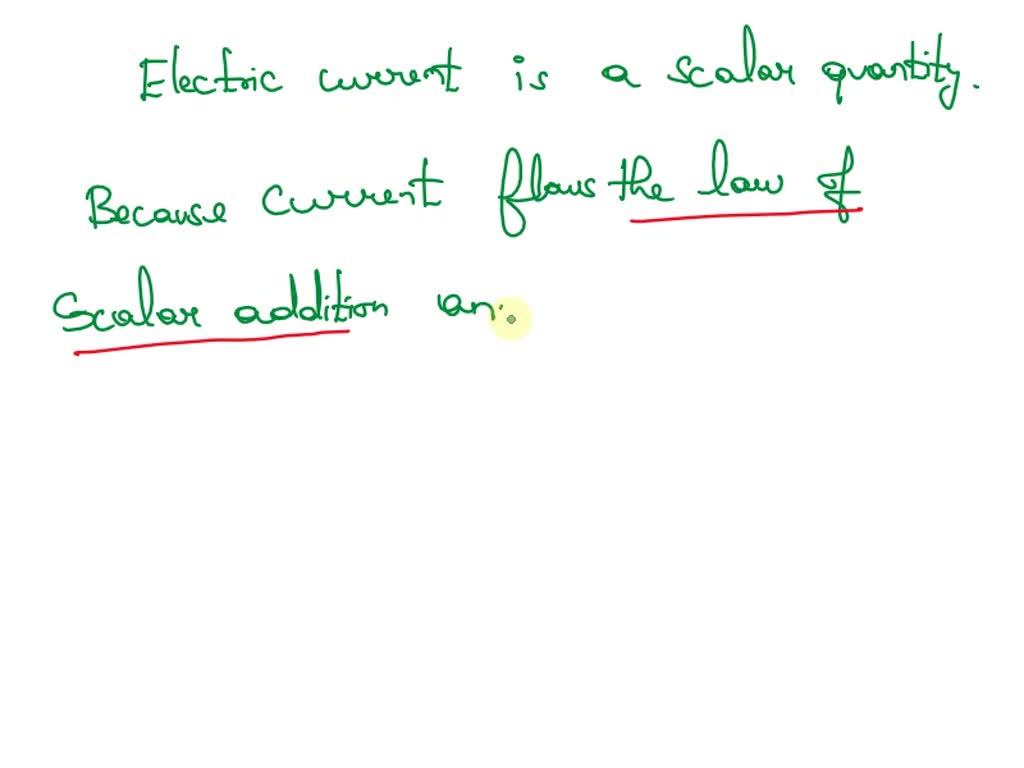 Electric current is a scalar quantity.
Because current flows the law of
Scalar addition an